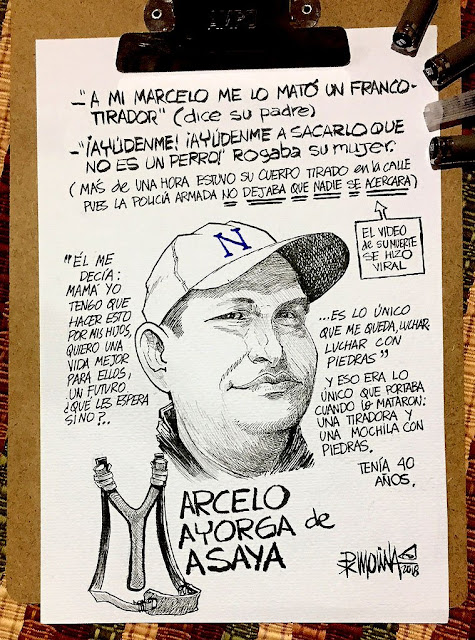 —"A MI MARCELO ME LO MATÓ UN FRANCO-
TIRADOR" (dice su padre)
—"¡AYÚDENME! ¡AYÚDENME A SACARLO QUE
NO ES UN PERRO!" ROGABA SU MUJER.
(MÁS de UNA HORA ESTUVO SU CUERPO TIRADO en la CALLE
PUES LA POLICÍA ARMADA NO DEJABA QUE NADIE SE ACERCARA)
EL VIDEO
de SU MUERTE
SE HIZO
VIRAL
"ÉL ME
DECÍA:
MAMÁ YO
TENGO QUE
HACER ESTO
POR MIS HIJOS,
QUIERO UNA
VIDA MEJOR
PARA ELLOS,
UN FUTURO
¿QUE LES ESPERA
SINO?...
N
...ES LO ÚNICO
QUE ME QUEDA, LUCHAR,
LUCHAR CON
PIEDRAS"
Y ESO ERA LO
ÚNICO QUE PORTABA
CUANDO LO MATARON:
UNA TIRADORA Y
UNA MOCHILA CON
PIEDRAS.
TENÍA 40
AÑOS.
MARCELO
MAYORGA de
MASAYA
MOLINA
2018